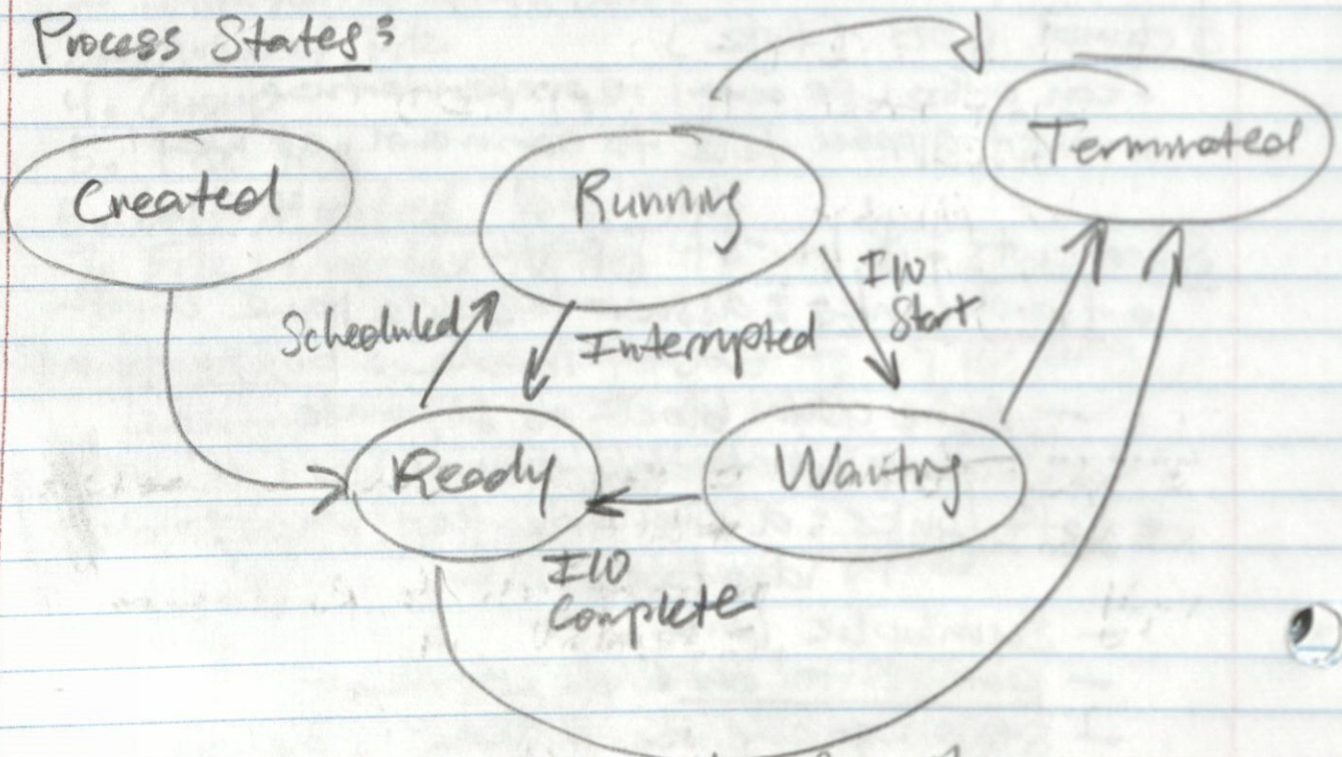 Process States:
Created
Running
Terminated
Scheduled
Interrupted
I/O
Start
Ready
Waiting
I/O
Complete